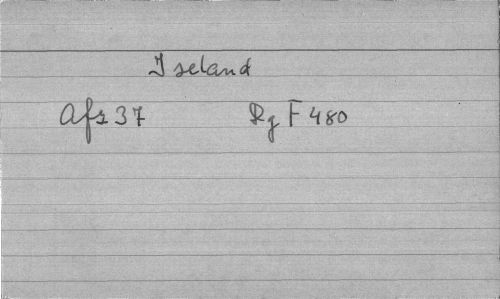 Iseland
Afs 37 Rg F 480